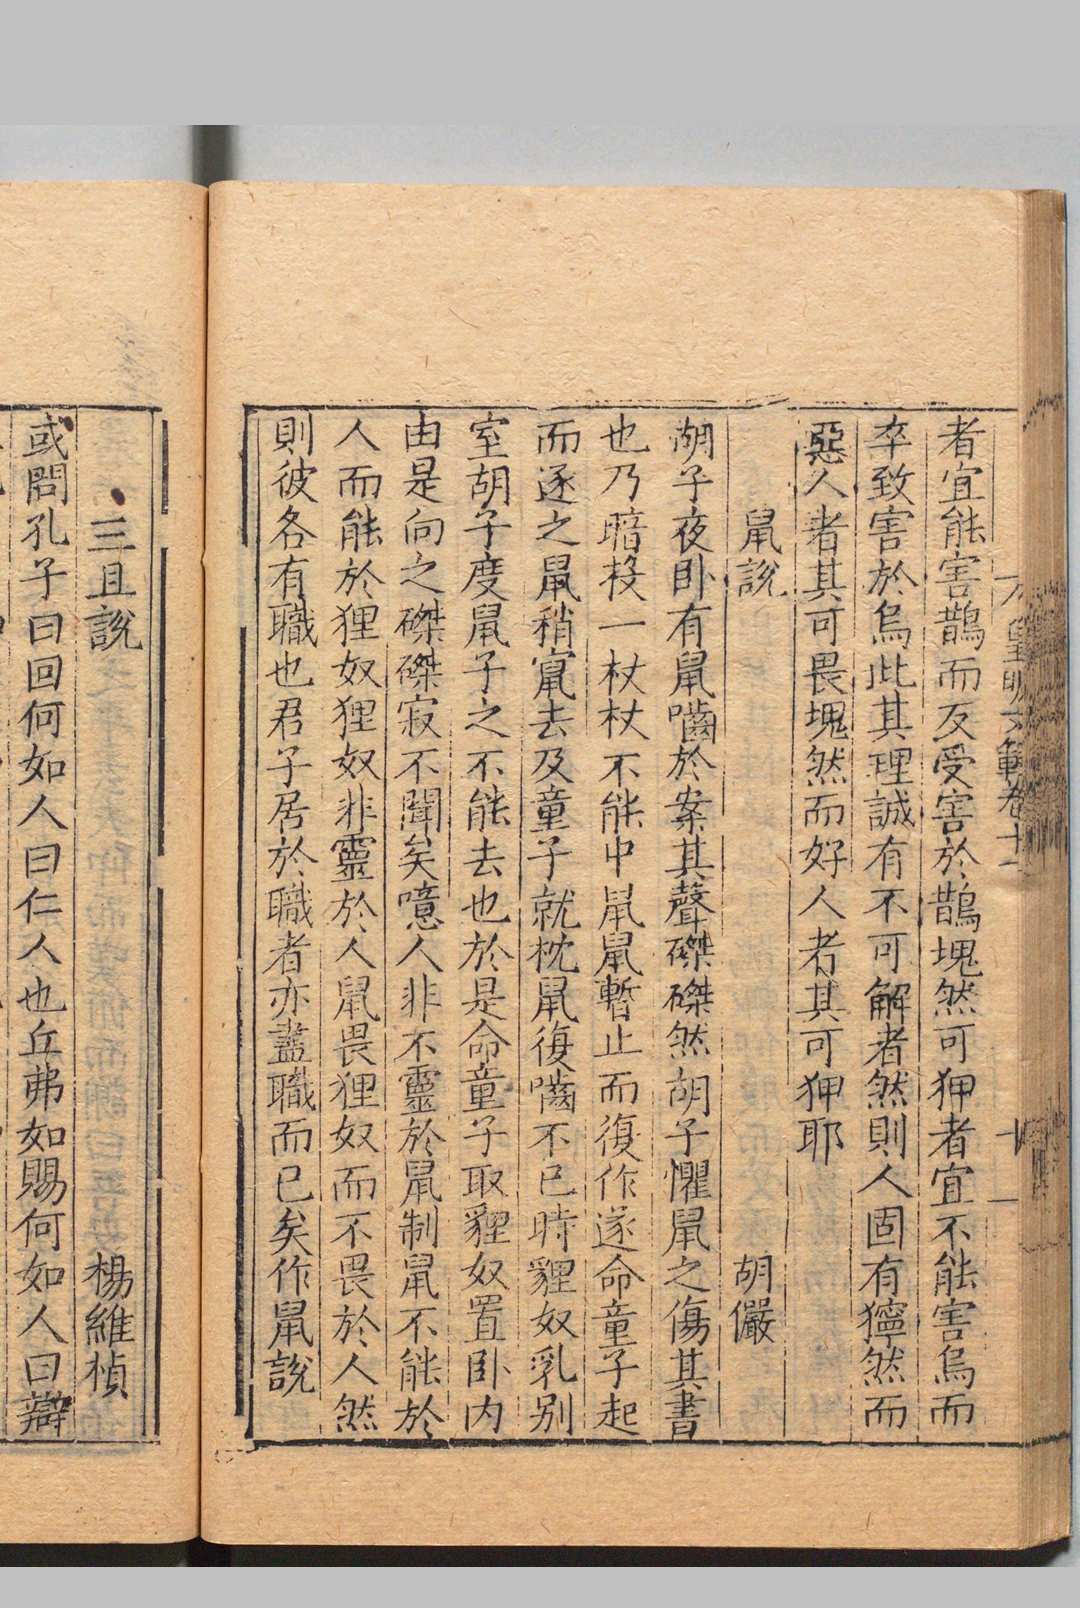 皇明文範卷十二
十
者宜能害鵲而反受害於鵲塊然可狎者宜不能害烏而
卒致害於烏此其理誠有不可解者然則人固有獰然而
惡人者其可畏塊然而好人者其可狎耶
鼠說
胡儼
胡子夜卧有鼠嚙於案其聲磔磔然胡子懼鼠之傷其書
也乃暗投一杖杖不能中鼠鼠暫止而復作遂命童子起
而逐之鼠稍竄去及童子就枕鼠復嚙不已時貍奴乳别
室胡子度鼠子之不能去也於是命童子取貍奴置卧内
由是向之磔磔寂不聞矣噫人非不靈於鼠制鼠不能於
人而能於狸奴狸奴非靈於人鼠畏狸奴而不畏於人然
則彼各有職也君子居於職者亦盡職而已矣作鼠說
三且說
楊維楨
或問孔子曰回何如人曰仁人也丘弗如賜何如人曰辯